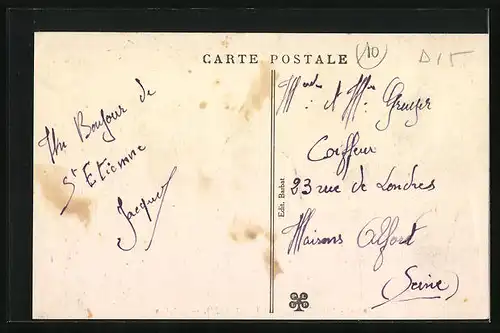 CARTE POSTALE
10
D15
Un Bonjour de
St Etienne
Jacques
Edit. Barbat
et
Coiffeur
23 rue de Londres
Maisons Alfort
(Seine)